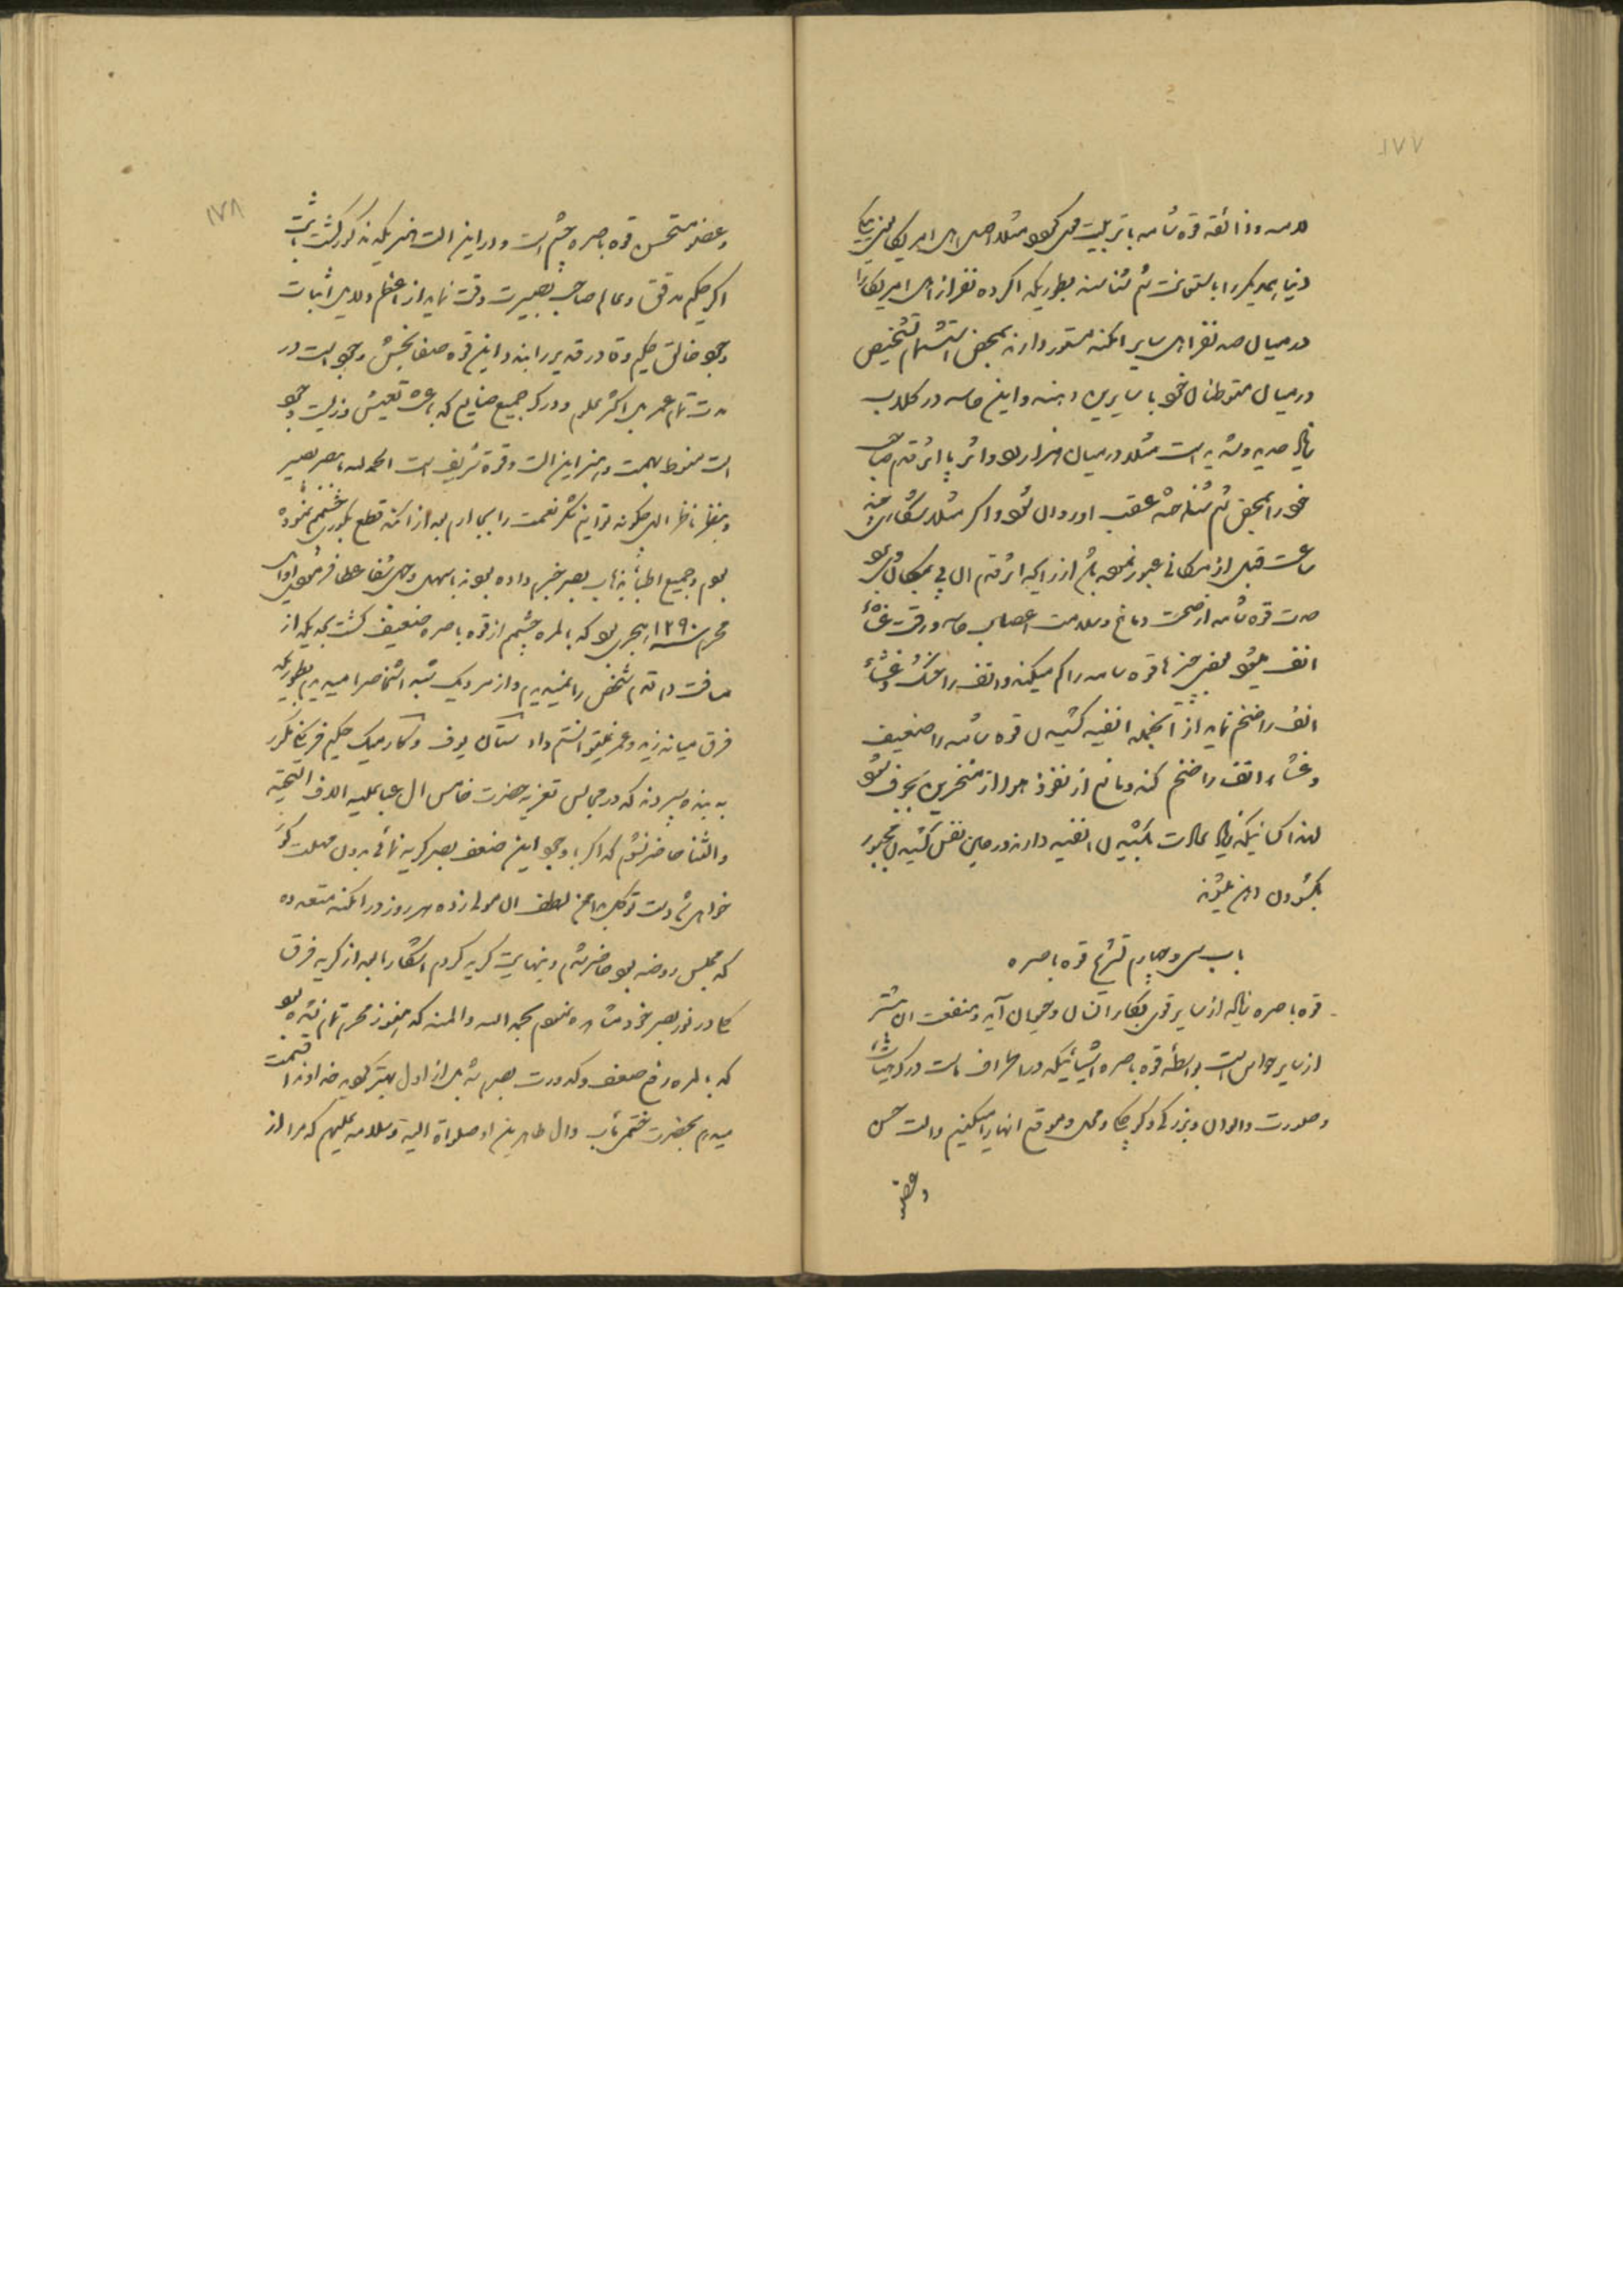 ۱۷۷
لامسه و ذائقه قوه شامه با تربیت میگردد مثلا اصل اهل امریکا
دنیا همدیگر را با استعانت شم شناسند بطوریکه اگر ده نفر از اهل امریکا را
در میان صد نفر اهل سایر امکنه مستور دارند بمحض استشمام تشخیص
در میان متوطنان خود با سایرین دهند و این حاسه در کلاب
زیاد حدید و شدید است مثلا در میان هزار اثر پا اثر قدم صاحب
خود را بمحض شم شناخته عقب او روان شود و اگر مثلا شکاری چند
ساعت قبل از مکانی عبور نموده باشد از رایحه اثر قدم آن پی بمکان آن برد
حدت قوه شامه از صحت دماغ و سلامت اعصاب حاسه و رقت غشاء
انف میشود بعض چیزها قوه شامه را کم میکند و انف را خشک و غشاء
انف را ضخیم نماید از آنجمله انفیه کشیدن قوه شامه را ضعیف
و غشاء انف را ضخم کند و مانع از نفوذ هوا از منخرین بجوف شود
لهذا کسانیکه زیاد عادت بکشیدن انفیه دارند در حین نفس کشیدن مجبور
بگشودن دهن میشوند
باب سی و چهارم تشریح قوه باصره
قوه باصره زیاد از سایر قوی بکار انسان و حیوان آید و منفعت آن بیشتر
از سایر حواس است بواسطه قوه باصره اشیائیکه در اطراف ماست درک هیأت
و صورت و الوان و بزرگی و کوچکی و محل و موقع آنها را میکنیم و الت حس
و عضو
۱۷۸
و عضو متحسس قوه باصره چشم است و در این الت بنهجیکه مذکور گشت
اگر حکیم مدقق و عالم صاحب بصیرت دقت نماید از اعظم دلایل اثبات
وجود خالق حکیم و قادر قدیر را بیند و این قوه صفا بخش وجود است در
مدت تمام عمر اکثر علوم و درک جمیع صنایع که باعث تعیش و زیست وجود
است منوط بصحت و تمیز این الت و قوه شریف است الحمد لله بصیر
و بنظر ناظر الی چگونه توانم شکر نعمت را بجا ارم بعد از آنکه قطع بکوری چشمم نموده
بودم و جمیع اطباء بذهاب بصرم خبر داده بودند باسهل وجهی شفا عطا فرمود اوایل
محرم سنه ۱۲۹۰ هجری بود که بالمره چشمم از قوه باصره ضعیف گشت بحدیکه از
مسافت ده قدم شخص را نمیدیدم و از نزدیک شبه اشخاص را میدیدم بطوریکه
فرق میانه زید و عمر نمیتوانستم داد و حکیم فرنگی مکرر
به بنده سپردند که در مجالس تعزیه حضرت خامس آل عبا علیه الاف التحیه
و الثنا حاضر نشوم که اگر با وجود این ضعف بصر گریه نمائی بدون مهلت کور
خواهی شد دست توکل بدامن لطف آن مولا زده هر روز در امکنه متعدده
که مجلس روضه بود حاضر شدم و بنهایت گریه کردم اشکارا بعد از گریه فرق
کلی در نور بصر خود مشاهده نمودم بحمد الله و المنه که هنوز محرم تمام نشده بود
که بالمره رفع ضعف و کدورت بصرم شد بل از اول بهتر گردید خداوند را قسمت
میدهم بحضرت ختمی مآب و ال طاهرین او صلواة الله و سلامه علیهم که مرا از